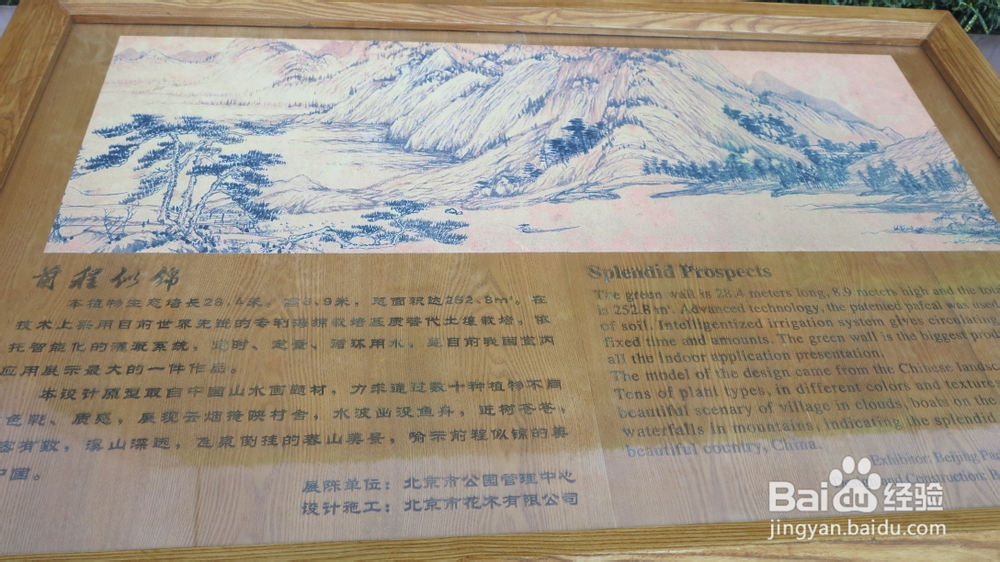 前程似锦
本植物生态墙长28.4米，高8.9米，总面积达252.8㎡。在
技术上采用目前世界先进的专利海绵栽培基质替代土壤栽培，依
托智能化的灌溉系统，定时、定量、循环用水，是目前我国室内
应用展示最大的一件作品。
本设计原型取自中国山水画题材，力求通过数十种植物不同
色彩、质感，展现云烟掩映村舍，水波出没鱼舟，近树苍苍，
有致，溪山深远，飞泉倒挂的春山美景，喻示前程似锦的美
中国。
展陈单位：北京市公园管理中心
设计施工：北京市花木有限公司
Splendid Prospects
The green wall is 28.4 meters long, 8.9 meters high and the tot
is 252.8㎡. Advanced technology, the patented patical was used
of soil. Intelligentized irrigation system gives circulation
fixed time and amounts. The green wall is the biggest prod
all the indoor application presentation.
The model of the design came from the Chinese landsc
Tens of plant types, in different colors and texturer
beautiful scenary of village in clouds, boats on the
waterfalls in mountains, indicating the splendid
beautiful country, China.
Exhibitor: Beijing Par
and Construction: B
Baidu经验
jingyan.baidu.com